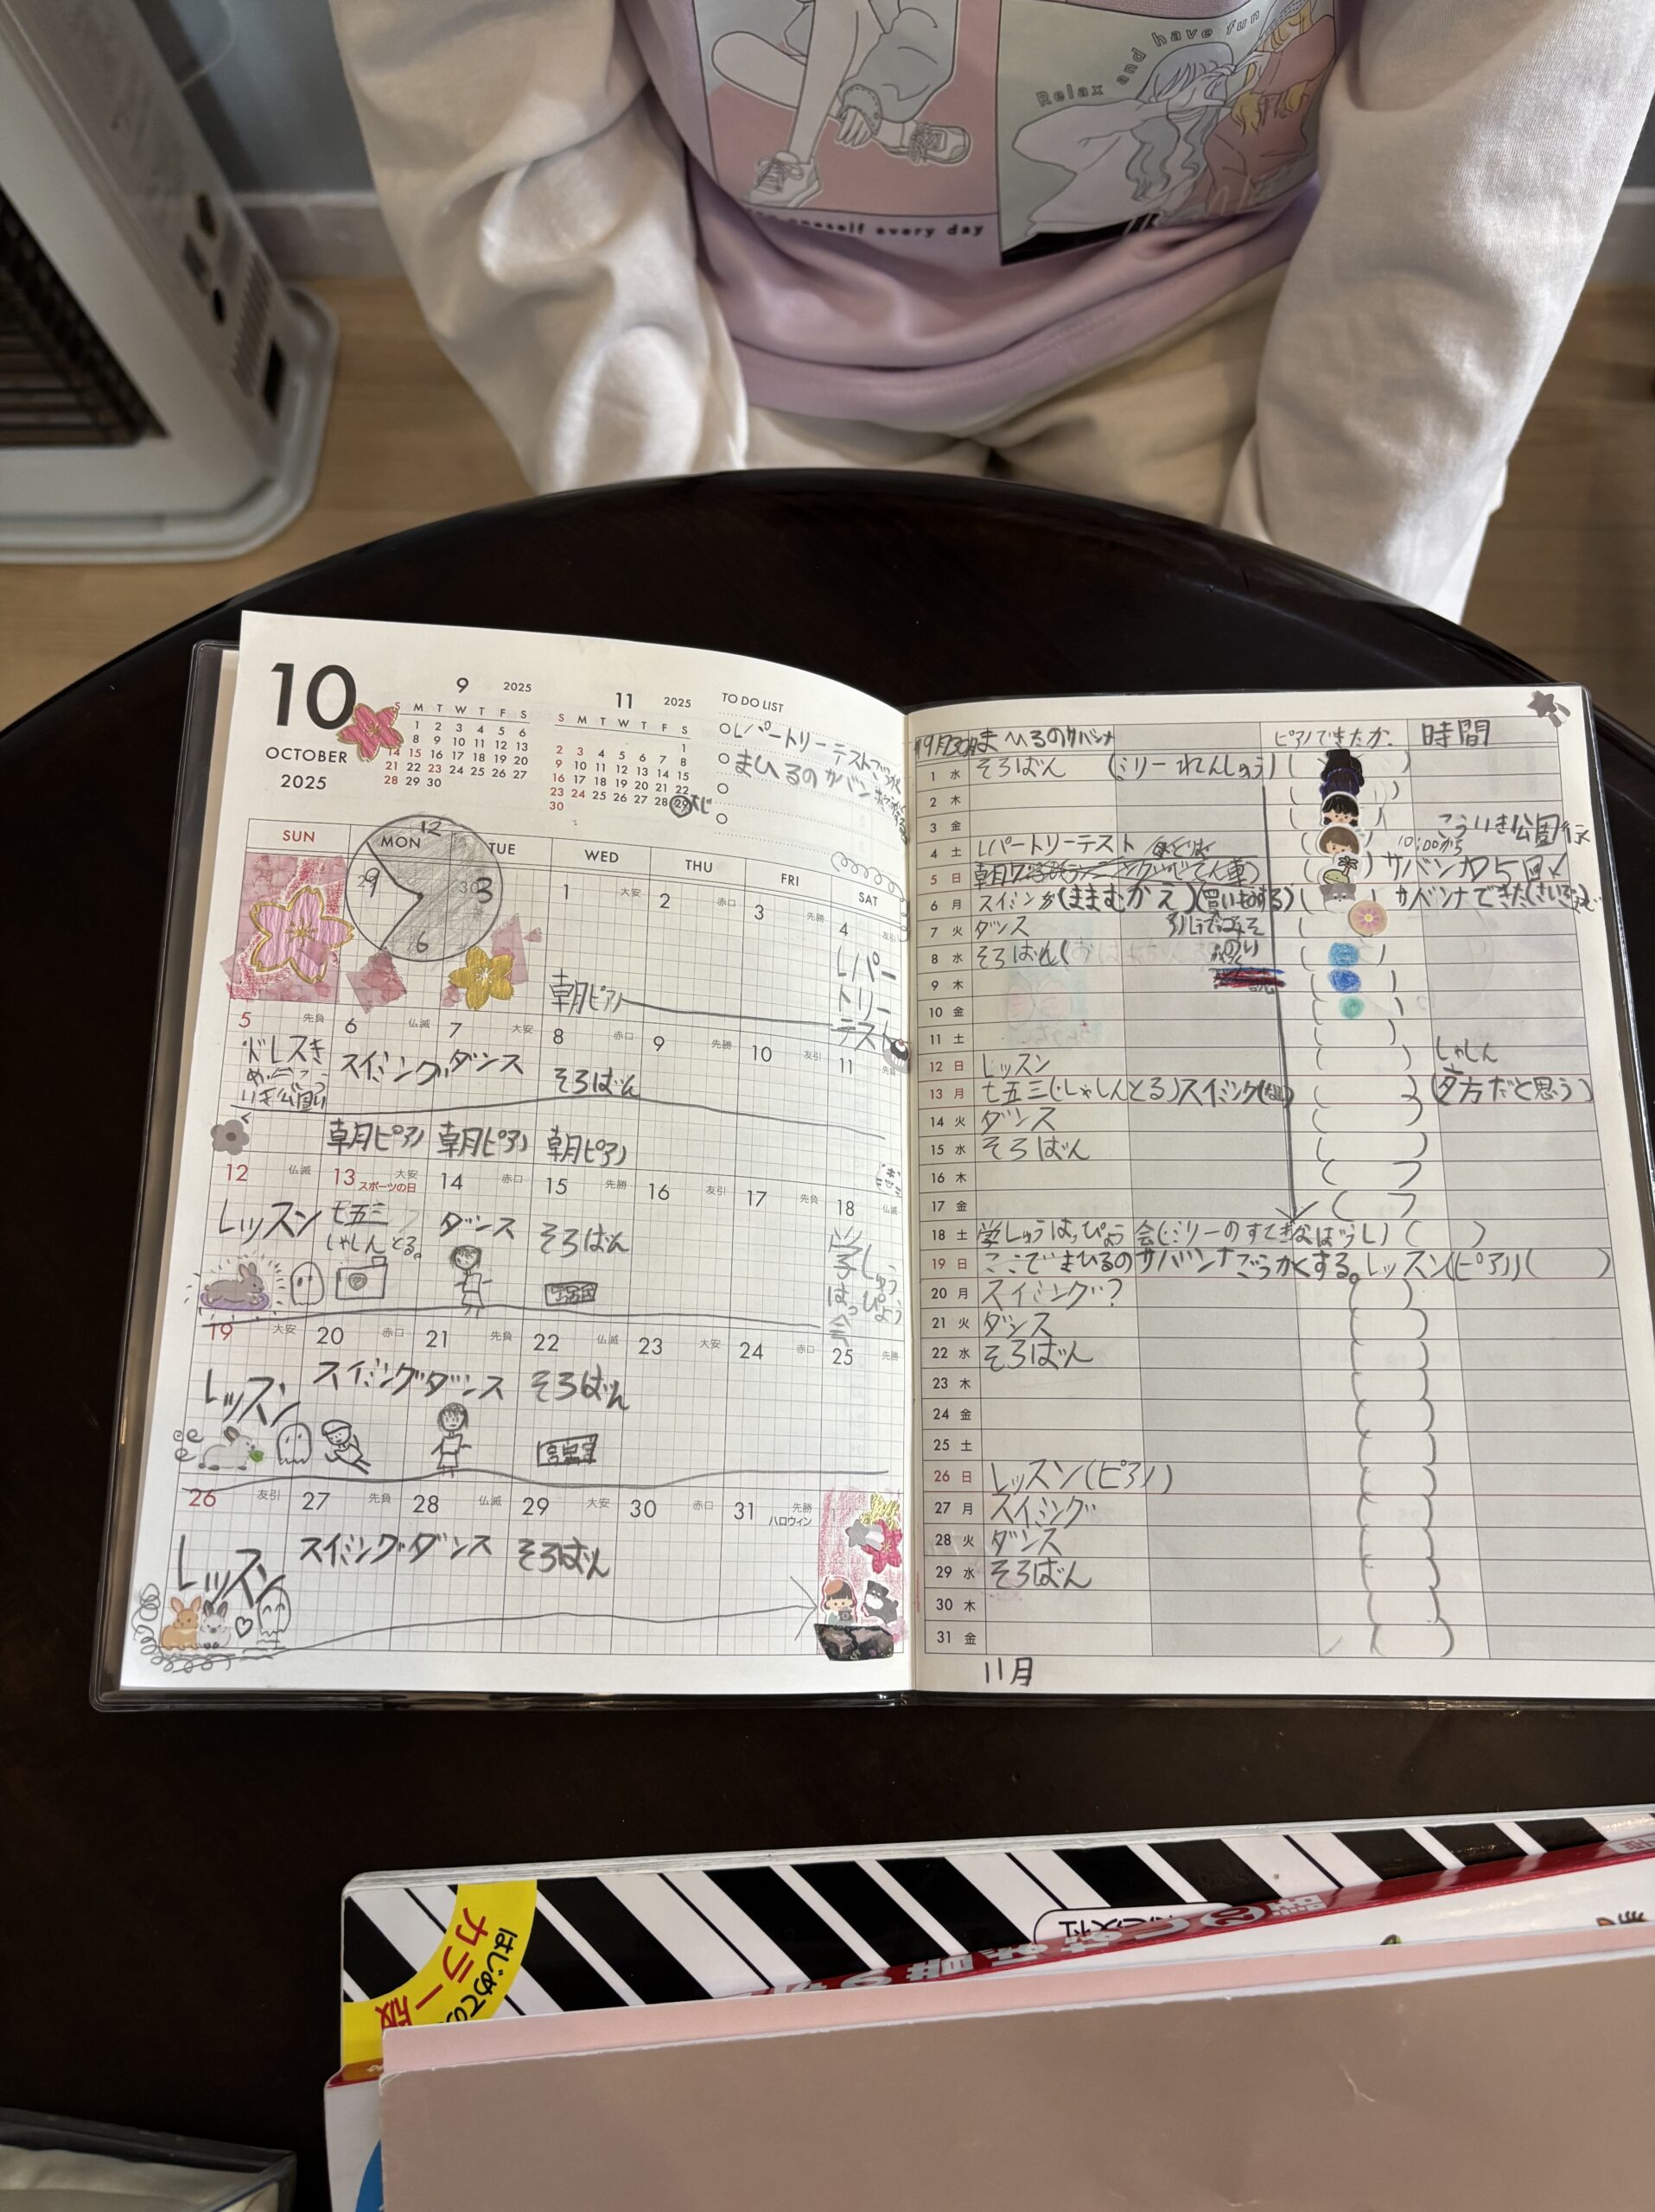 Relax and have fun
every day
10
OCTOBER
2025
9 2025
S M T W T F S
1 2 3 4 5 6
8 9 10 11 12 13
14 15 16 17 18 19 20
21 22 23 24 25 26 27
28 29 30
11 2025
S M T W T F S
1
2 3 4 5 6 7 8
9 10 11 12 13 14 15
16 17 18 19 20 21 22
23 24 25 26 27 28 29
30
TO DO LIST
レパートリーテストごうかく
まひるのサバンナ
12
9 3
6
SUN MON TUE WED THU FRI SAT
1 大安 2 赤口 3 先勝 4 友引
レパートリーテスト
朝ピアノ
5 先負 6 仏滅 7 大安 8 赤口 9 先勝 10 友引 11 先負
スイミング ダンス そろばん
朝ピアノ 朝ピアノ 朝ピアノ
12 仏滅 13 大安 スポーツの日 14 赤口 15 先勝 16 友引 17 先負 18 仏滅
レッスン 七五三 しゃしんとる。 ダンス そろばん 学しゅうはっぴょう会
19 大安 20 赤口 21 先負 22 仏滅 23 大安 24 赤口 25 先勝
レッスン スイミング ダンス そろばん
26 友引 27 先負 28 仏滅 29 大安 30 赤口 31 先勝 ハロウィン
レッスン スイミング ダンス そろばん
9月30日 まひるのサバンナ ピアノできたか。 時間
1 水 そろばん (ミリーれんしゅう) ( )
2 木 ( )
3 金 ( ) こういき公園行
4 土 レパートリーテスト ( ) 10:00から
5 日 ( ) サバンナ5回
6 月 スイミング(ままむかえ)(買いものする) ( サバンナできた
7 火 ダンス (
8 水 そろばん( ( )
9 木 ( )
10 金 ( )
11 土 ( )
12 日 レッスン ( ) しゃしん
13 月 七五三(しゃしんとる)スイミング ( ) (夕方だと思う)
14 火 ダンス ( )
15 水 そろばん ( )
16 木 ( )
17 金 ( )
18 土 学しゅうはっぴょう会(ミリーのすてきなぼうし) ( )
19 日 ここでまひるのサバンナごうかくする。レッスン(ピアノ) ( )
20 月 スイミング? ( )
21 火 ダンス ( )
22 水 そろばん ( )
23 木 ( )
24 金 ( )
25 土 ( )
26 日 レッスン(ピアノ) ( )
27 月 スイミング ( )
28 火 ダンス ( )
29 水 そろばん ( )
30 木 ( )
31 金 ( )
11月
はじめての
カラー版